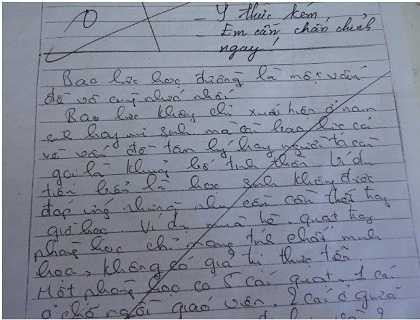 0
- Ý thức kém
- Em cần chấn chỉnh
ngay!
Bạo lực học đường là một vấn
đề vô cùng nhức nhối
Bạo lực không chỉ xuất hiện ở nam
sinh hay nữ sinh mà còn bạo lực cả
về vấn đề tâm lý hay người ta còn
gọi là khủng bố tinh thần. Ví dụ
tiêu biểu là học sinh không được
đáp ứng những nhu cần cần thiết hay
giờ học. Ví dụ mùa hè quạt hay
phòng học chỉ mang tính chất minh
họa, không có giá trị thực tiễn.
Một phòng học có 5 cái quạt, 1 cái
ở chỗ ngồi giáo viên. 2 cái ở giữa